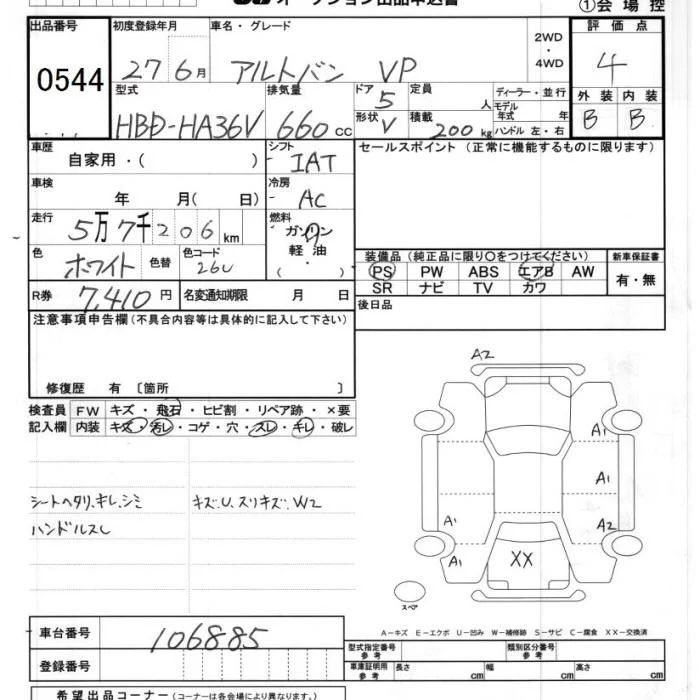 オークション出品申込書
①会場控
出品番号 初度登録年月 車名・グレード 評価点
0544 27 6月 アルトバン VP 2WD・4WD 4
型式 排気量 ドア 5 定員 人 ディーラー・並行 外装 内装
HBD-HA36V 660cc 形状 V 積載 200kg モデル年式 年 B B
ハンドル 左・右
車歴 シフト セールスポイント(正常に機能するものに限ります)
自家用・( ) IAT
車検 冷房
年 月( 日) AC
走行 燃料
5万7千206km ガソリン
軽油
・( )
色 色替 色コード
ホワイト 26U
装備品(純正品に限り○をつけてください) 新車保証書
PS PW ABS エアB AW 有・無
SR ナビ TV カワ
R券 7,410円 名変通知期限 月 日 後日品
注意事項申告欄(不具合内容等は具体的に記入して下さい)
修復歴 有〔箇所 〕
検査員 FW キズ・飛石・ヒビ割・リペア跡・×要
記入欄 内装 キズ・汚レ・コゲ・穴・スレ・キレ・破レ
シートヘタリ.キレ.シミ キズ.U.スリキズ.W2
ハンドルスレ
A2
A1
A1
A1 A2
A1 XX
スペア
A-キズ E-エクボ U-凹み W-補修跡 S-サビ C-腐食 XX-交換済
車台番号 106885
型式指定番号 参考 類別区分番号 参考
登録番号
車庫証明用 参考 長さ cm 幅 cm 高さ cm
希望出品コーナー(コーナーは各会場により異なります。)